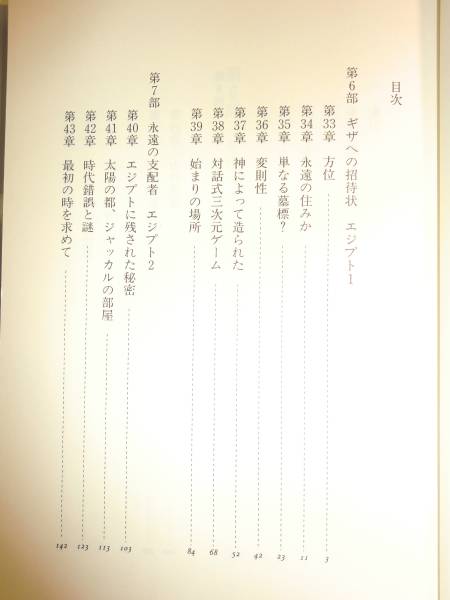 目次
第6部 ギザへの招待状 エジプト1
第33章 方位 3
第34章 永遠の住みか 11
第35章 単なる墓標? 23
第36章 変則性 42
第37章 神によって造られた 52
第38章 対話式三次元ゲーム 68
第39章 始まりの場所 84
第7部 永遠の支配者 エジプト2
第40章 エジプトに残された秘密 103
第41章 太陽の都、ジャッカルの部屋 113
第42章 時代錯誤と謎 123
第43章 最初の時を求めて 142